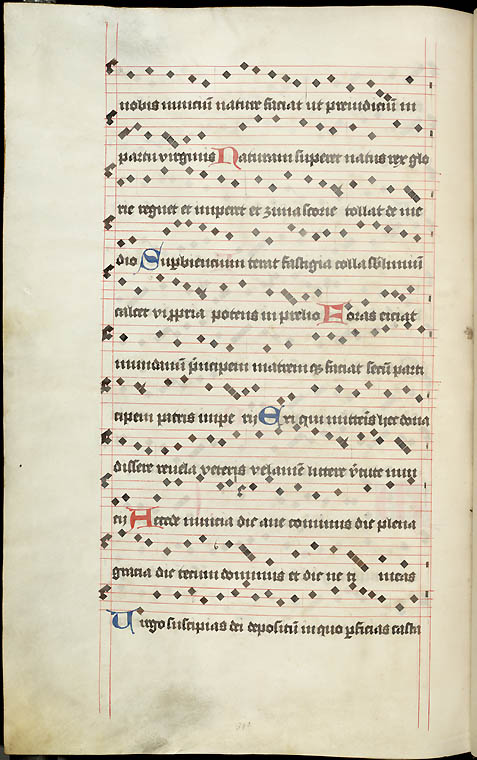 nobis nunciū nature faciat ut preiudiciū in
partu virginis Naturam superet natus rex glo
rie regnet et imperet et zima scorie tollat de me
dio Supbiencium terat fastigia colla sblimiū
calcet vi ppria potens in prelio Foras eiciat
mundanū pncipem matrem qȝ faciat secū parti
cipem patris impe rij Exi qui mitteris hec dona
dissere revela veteris velamē littere vtute nun
cij Accede nuncia dic ave cominus dic plena
gracia dic tecum dominus et dic ne ti meas
Virgo suscipias dei depositū in quo pficias casta